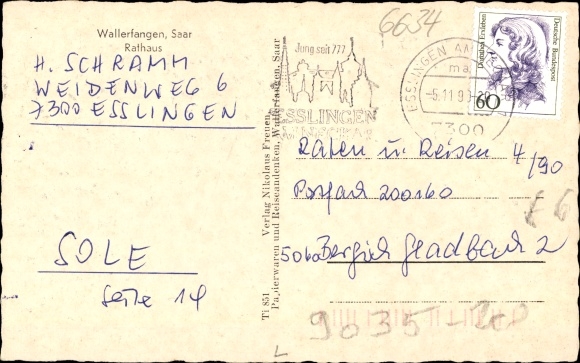 Wallerfangen, Saar
Rathaus
H. SCHRAMM
WEIDENWEG 6
7300 ESSLINGEN
SOLE
Seite 14
Ti 851 Verlag Nikolaus Freuen,
Papierwaren und Reiseandenken, Wallerfangen, Saar
6634
Jung seit 777
ESSLINGEN
ESSLINGEN AM
7300
Dorothea Erxleben
Deutsche Bundespost
60
Raten u Reisen 4/90
Postfach 200160
5060 Bergisch Gladbach 2
€6
9035